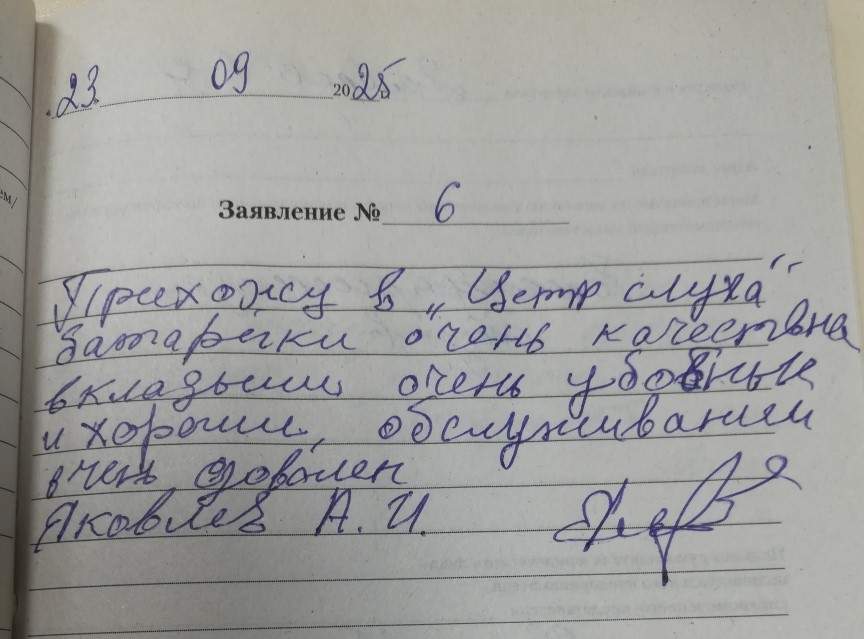 23 09 2025
Заявление № 6
Прихожу в „Центр слуха“
батарейки очень качествена
вкладыши очень убовные
и хороши, обслуживанием
очень доволен
Яковлев А. И.